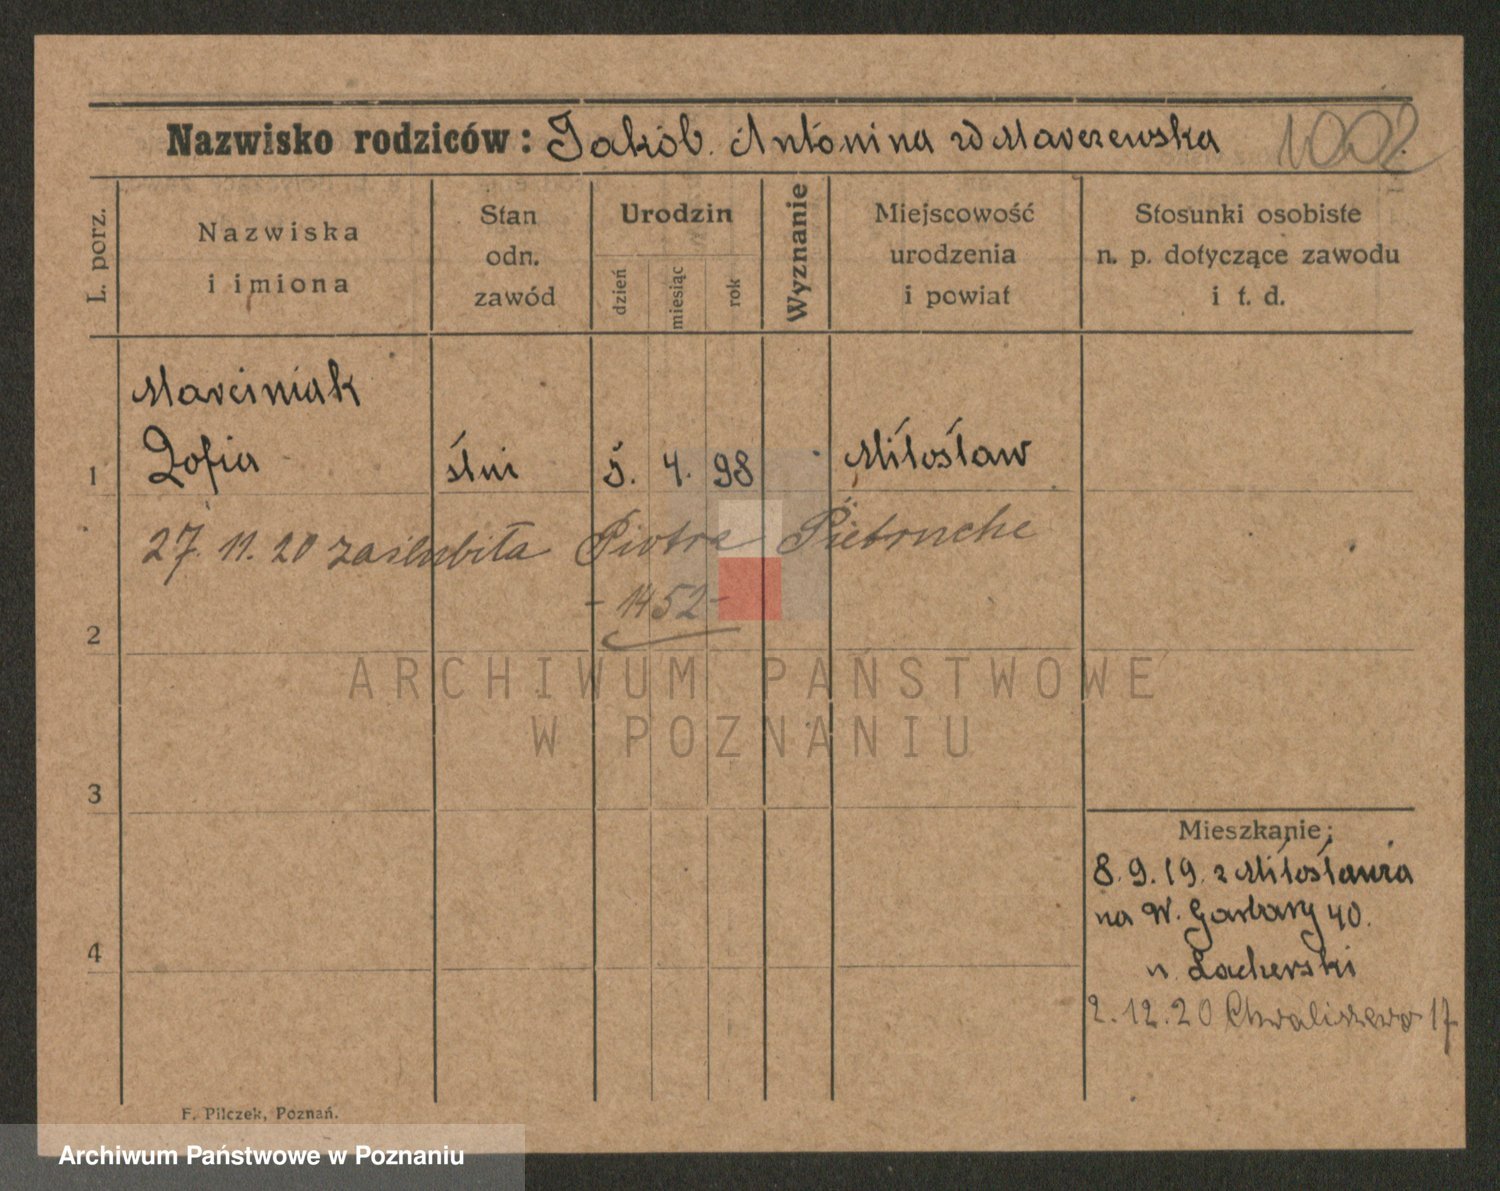 Nazwisko rodziców: Jakób. Antonina zd Marczewska 1002
L. porz.
Nazwiska
i imiona
Stan
odn.
zawód
Urodzin
dzień
miesiąc
rok
Wyznanie
Miejscowość
urodzenia
i powiat
Stosunki osobiste
n. p. dotyczące zawodu
i t. d.
Marciniak
1 Zofia 5. 4. 98 Miłosław
27. 11. 20 zaślubiła Piotra Pietruche
- 1452 -
2
ARCHIWUM PAŃSTWOWE
W POZNANIU
3
Mieszkanie:
8. 9. 19. z Miłosławia
na W. Garbary 40.
4
2. 12. 20 Chwaliszewo 17
F. Pilczek, Poznań.
Archiwum Państwowe w Poznaniu